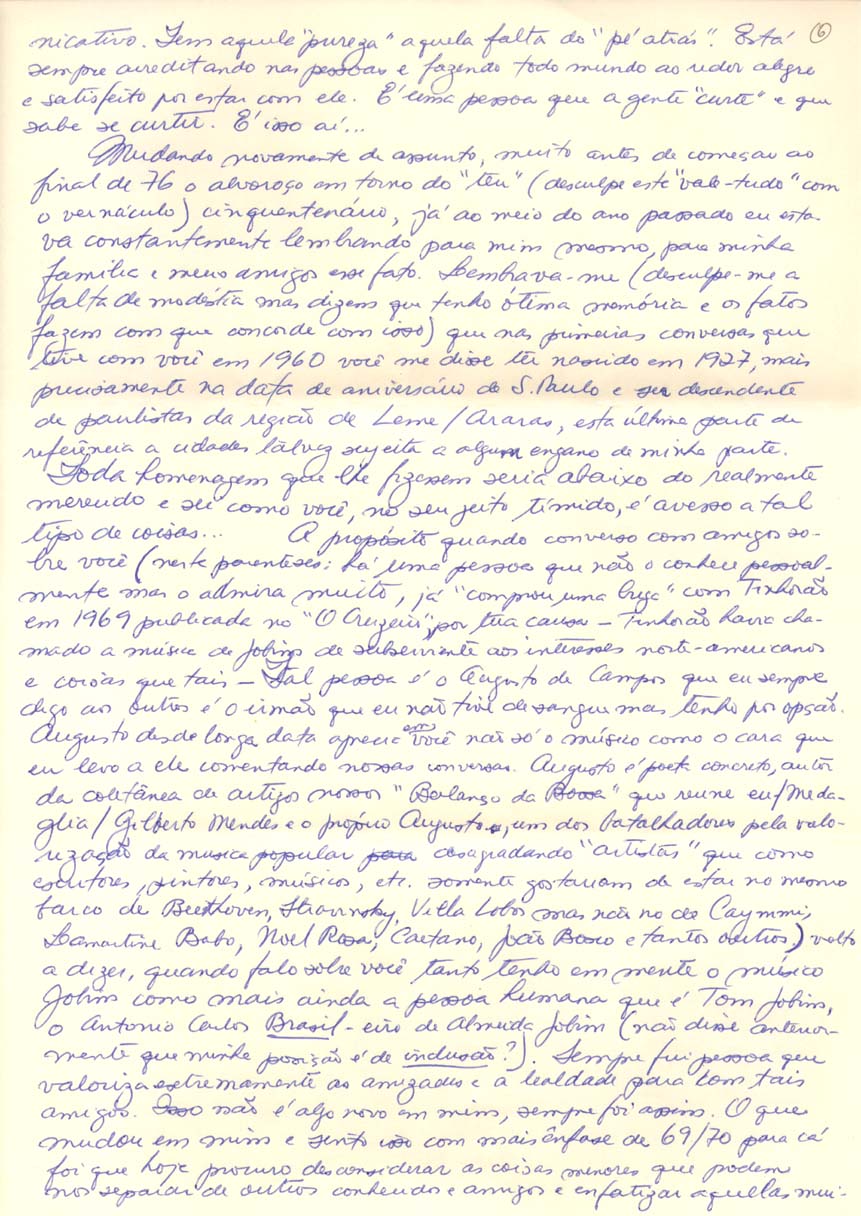 nicativo. Tem aquela "pureza" aquela falta do "pé atrás". Está 6
sempre acreditando nas pessoas e fazendo todo mundo ao redor alegre
e satisfeito por estar com ele. É uma pessoa que a gente "curte" e que
sabe se curtir. É isso aí...
Mudando novamente de assunto, muito antes de começar ao
final de 76 o alvoroço em torno do "teu" (desculpe este "vale-tudo" com
o vernáculo) cinquentenário, já ao meio do ano passado eu esta-
va constantemente lembrando para mim mesmo, para minha
família e meus amigos esse fato. Lembrava-me (desculpe-me a
falta de modéstia mas dizem que tenho ótima memória e os fatos
fazem com que concorde com isso) que nas primeiras conversas que
tive com você em 1960 você me disse ter nascido em 1927, mais
precisamente na data de aniversário de S. Paulo e ser descendente
de paulistas da região de Leme/Araras, esta última parte de
referência a cidades talvez sujeita a algum engano de minha parte.
Toda homenagem que lhe fizessem seria abaixo do realmente
merecido e sei como você, no seu jeito tímido, é avesso a tal
tipo de coisas... A propósito quando converso com amigos so-
bre você (neste parenteses: há uma pessoa que não o conhece pessoal-
mente mas o admira muito, já "comprou uma briga" com Tinhorão
em 1969 publicada no "O Cruzeiro", por tua causa - Tinhorão havia cha-
mado a música de Jobim de subserviente aos interesses norte-americanos
e coisas que tais - Tal pessoa é o Augusto de Campos que eu sempre
digo aos outros é o irmão que eu não tive de sangue mas tenho por opção.
Augusto desde longa data aprecia em você não só o músico como o cara que
eu levo a ele comentando nossas conversas. Augusto é poeta concreto, autor
da coletânea de artigos nossos "Balanço da Bossa" que reune eu/Meda-
glia/Gilberto Mendes e o próprio Augusto, um dos batalhadores pela valo-
rização da musica popular desagradando "artistas" que como
escritores, pintores, músicos, etc. somente gostariam de estar no mesmo
barco de Beethoven, Stravinsky, Villa Lobos mas não no de Caymmi,
Lamartine Babo, Noel Rosa, Caetano, João Bosco e tantos outros.) volto
a dizer, quando falo sobre você tanto tenho em mente o músico
Jobim como mais ainda a pessoa humana que é Tom Jobim,
o Antonio Carlos Brasil-eiro de Almeida Jobim (não disse anterior-
mente que minha posição é de inclusão?). Sempre fui pessoa que
valoriza extremamente as amizades e a lealdade para com tais
amigos. Isso não é algo novo em mim, sempre foi assim. O que
mudou em mim e sinto isso com mais ênfase de 69/70 para cá
foi que hoje procuro desconsiderar as coisas menores que podem
nos separar de outros conhecidos e amigos e enfatizar aquelas mui-